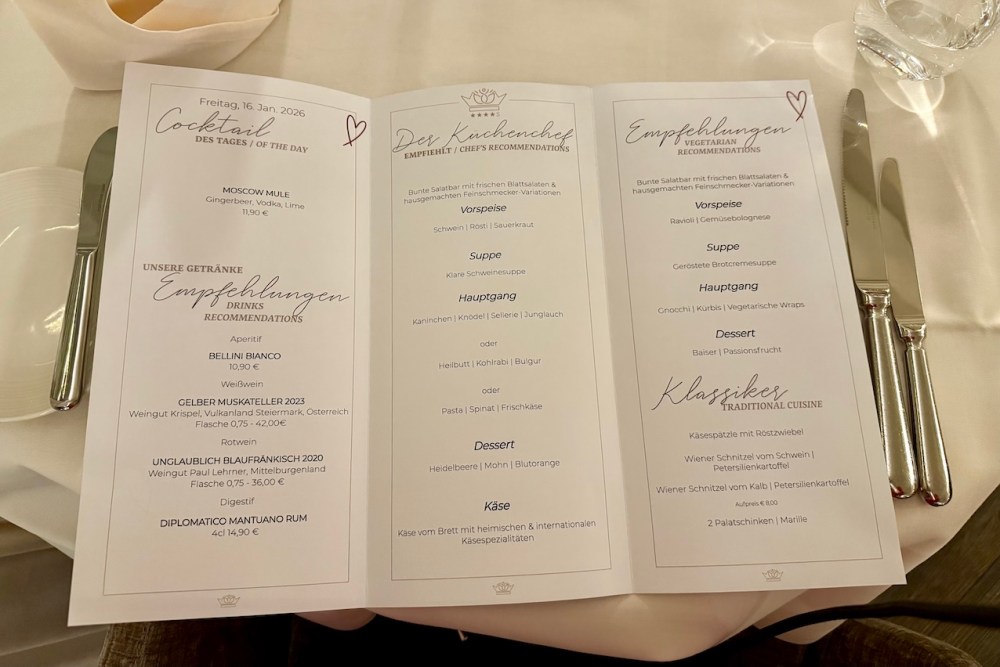 Freitag, 16. Jan. 2026
Cocktail
DES TAGES / OF THE DAY
MOSCOW MULE
Gingerbeer, Vodka, Lime
11,90 €
UNSERE GETRÄNKE
Empfehlungen
DRINKS
RECOMMENDATIONS
Aperitif
BELLINI BIANCO
10,90 €
Weißwein
GELBER MUSKATELLER 2023
Weingut Krispel, Vulkanland Steiermark, Österreich
Flasche 0,75 - 42,00€
Rotwein
UNGLAUBLICH BLAUFRÄNKISCH 2020
Weingut Paul Lehrner, Mittelburgenland
Flasche 0,75 - 36,00 €
Digestif
DIPLOMATICO MANTUANO RUM
4cl 14,90 €
Der Küchenchef
EMPFIEHLT / CHEF'S RECOMMENDATIONS
Bunte Salatbar mit frischen Blattsalaten &
hausgemachten Feinschmecker-Variationen
Vorspeise
Schwein | Rösti | Sauerkraut
Suppe
Klare Schweinesuppe
Hauptgang
Kaninchen | Knödel | Sellerie | Junglauch
oder
Heilbutt | Kohlrabi | Bulgur
oder
Pasta | Spinat | Frischkäse
Dessert
Heidelbeere | Mohn | Blutorange
Käse
Käse vom Brett mit heimischen & internationalen
Käsespezialitäten
Empfehlungen
VEGETARIAN
RECOMMENDATIONS
Bunte Salatbar mit frischen Blattsalaten &
hausgemachten Feinschmecker-Variationen
Vorspeise
Ravioli | Gemüsebolognese
Suppe
Geröstete Brotcremesuppe
Hauptgang
Gnocchi | Kürbis | Vegetarische Wraps
Dessert
Baiser | Passionsfrucht
Klassiker
TRADITIONAL CUISINE
Käsespätzle mit Röstzwiebel
Wiener Schnitzel vom Schwein |
Petersilienkartoffel
Wiener Schnitzel vom Kalb | Petersilienkartoffel
Aufpreis € 9,00
2 Palatschinken | Marille